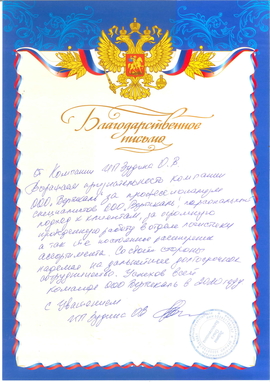 Благодарственное
письмо
От Компании ИП Будико О.В
Выражаем признательность компании
ООО "Вертикаль" за профессионализм
специалистов ООО "Вертикаль", персональный
подход к клиентам, за огромную
проведенную работу в отделе логистики
а так же постоянное расширение
ассортимента. Со своей стороны
надеемся на дальнейшее долгосрочное
сотрудничество. Успехов всей
команде ООО Вертикаль в 2010 году
С Уважением
ИП Будико ОВ